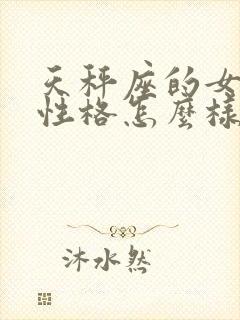 天秤座的女
性格怎麼樣
沐水然